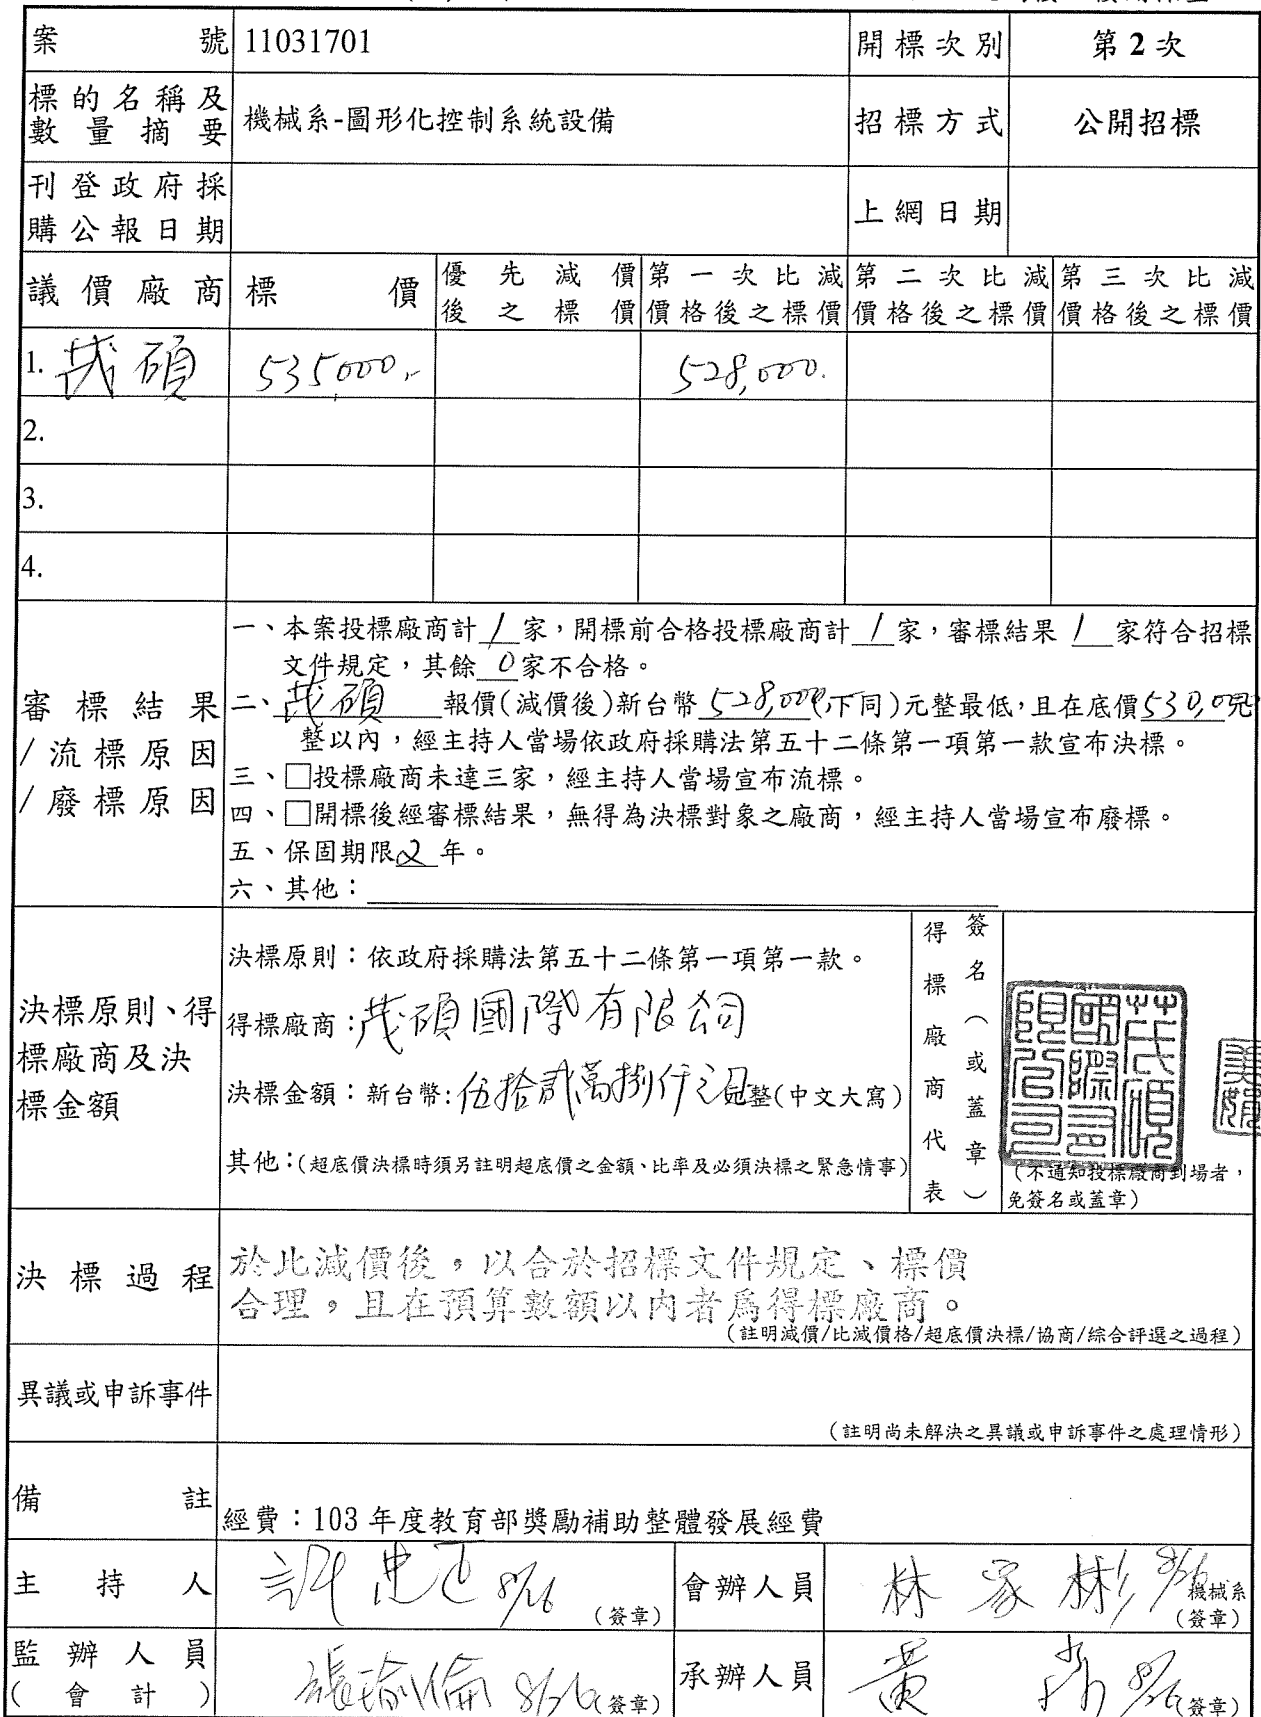 案號 11031701 開標次別 第2次
標的名稱及
數量摘要 機械系-圖形化控制系統設備 招標方式 公開招標
刊登政府採
購公報日期 上網日期
議價廠商 標價 優先減價 第一次比減 第二次比減 第三次比減
後之標價 價格後之標價 價格後之標價 價格後之標價
1. 茂碩 535,000.- 528,000.
2.
3.
4.
審標結果
/流標原因
/廢標原因
一、本案投標廠商計 1 家，開標前合格投標廠商計 1 家，審標結果 1 家符合招標
文件規定，其餘 0 家不合格。
二、茂碩 報價(減價後)新台幣 528,000(下同)元整最低，且在底價530,000元
整以內，經主持人當場依政府採購法第五十二條第一項第一款宣布決標。
三、□投標廠商未達三家，經主持人當場宣布流標。
四、□開標後經審標結果，無得為決標對象之廠商，經主持人當場宣布廢標。
五、保固期限 2 年。
六、其他：
決標原則、得
標廠商及決
標金額
決標原則：依政府採購法第五十二條第一項第一款。
得標廠商：茂碩國際有限公司
決標金額：新台幣：伍拾貳萬捌仟元整(中文大寫)
其他：(超底價決標時須另註明超底價之金額、比率及必須決標之緊急情事)
得標廠商代表
簽名（或蓋章）
茂碩國際有限公司
(不通知投標廠商到場者，
免簽名或蓋章)
決標過程 於比減價後，以合於招標文件規定、標價
合理，且在預算數額以內者為得標廠商。
(註明減價/比減價格/超底價決標/協商/綜合評選之過程)
異議或申訴事件
(註明尚未解決之異議或申訴事件之處理情形)
備註 經費：103 年度教育部獎勵補助整體發展經費
主持人 8/26 (簽章) 會辦人員 林家彬 8/26 機械系
(簽章)
監辦人員
(會計) 張瑜倫 8/26 (簽章) 承辦人員 黃 8/26 (簽章)